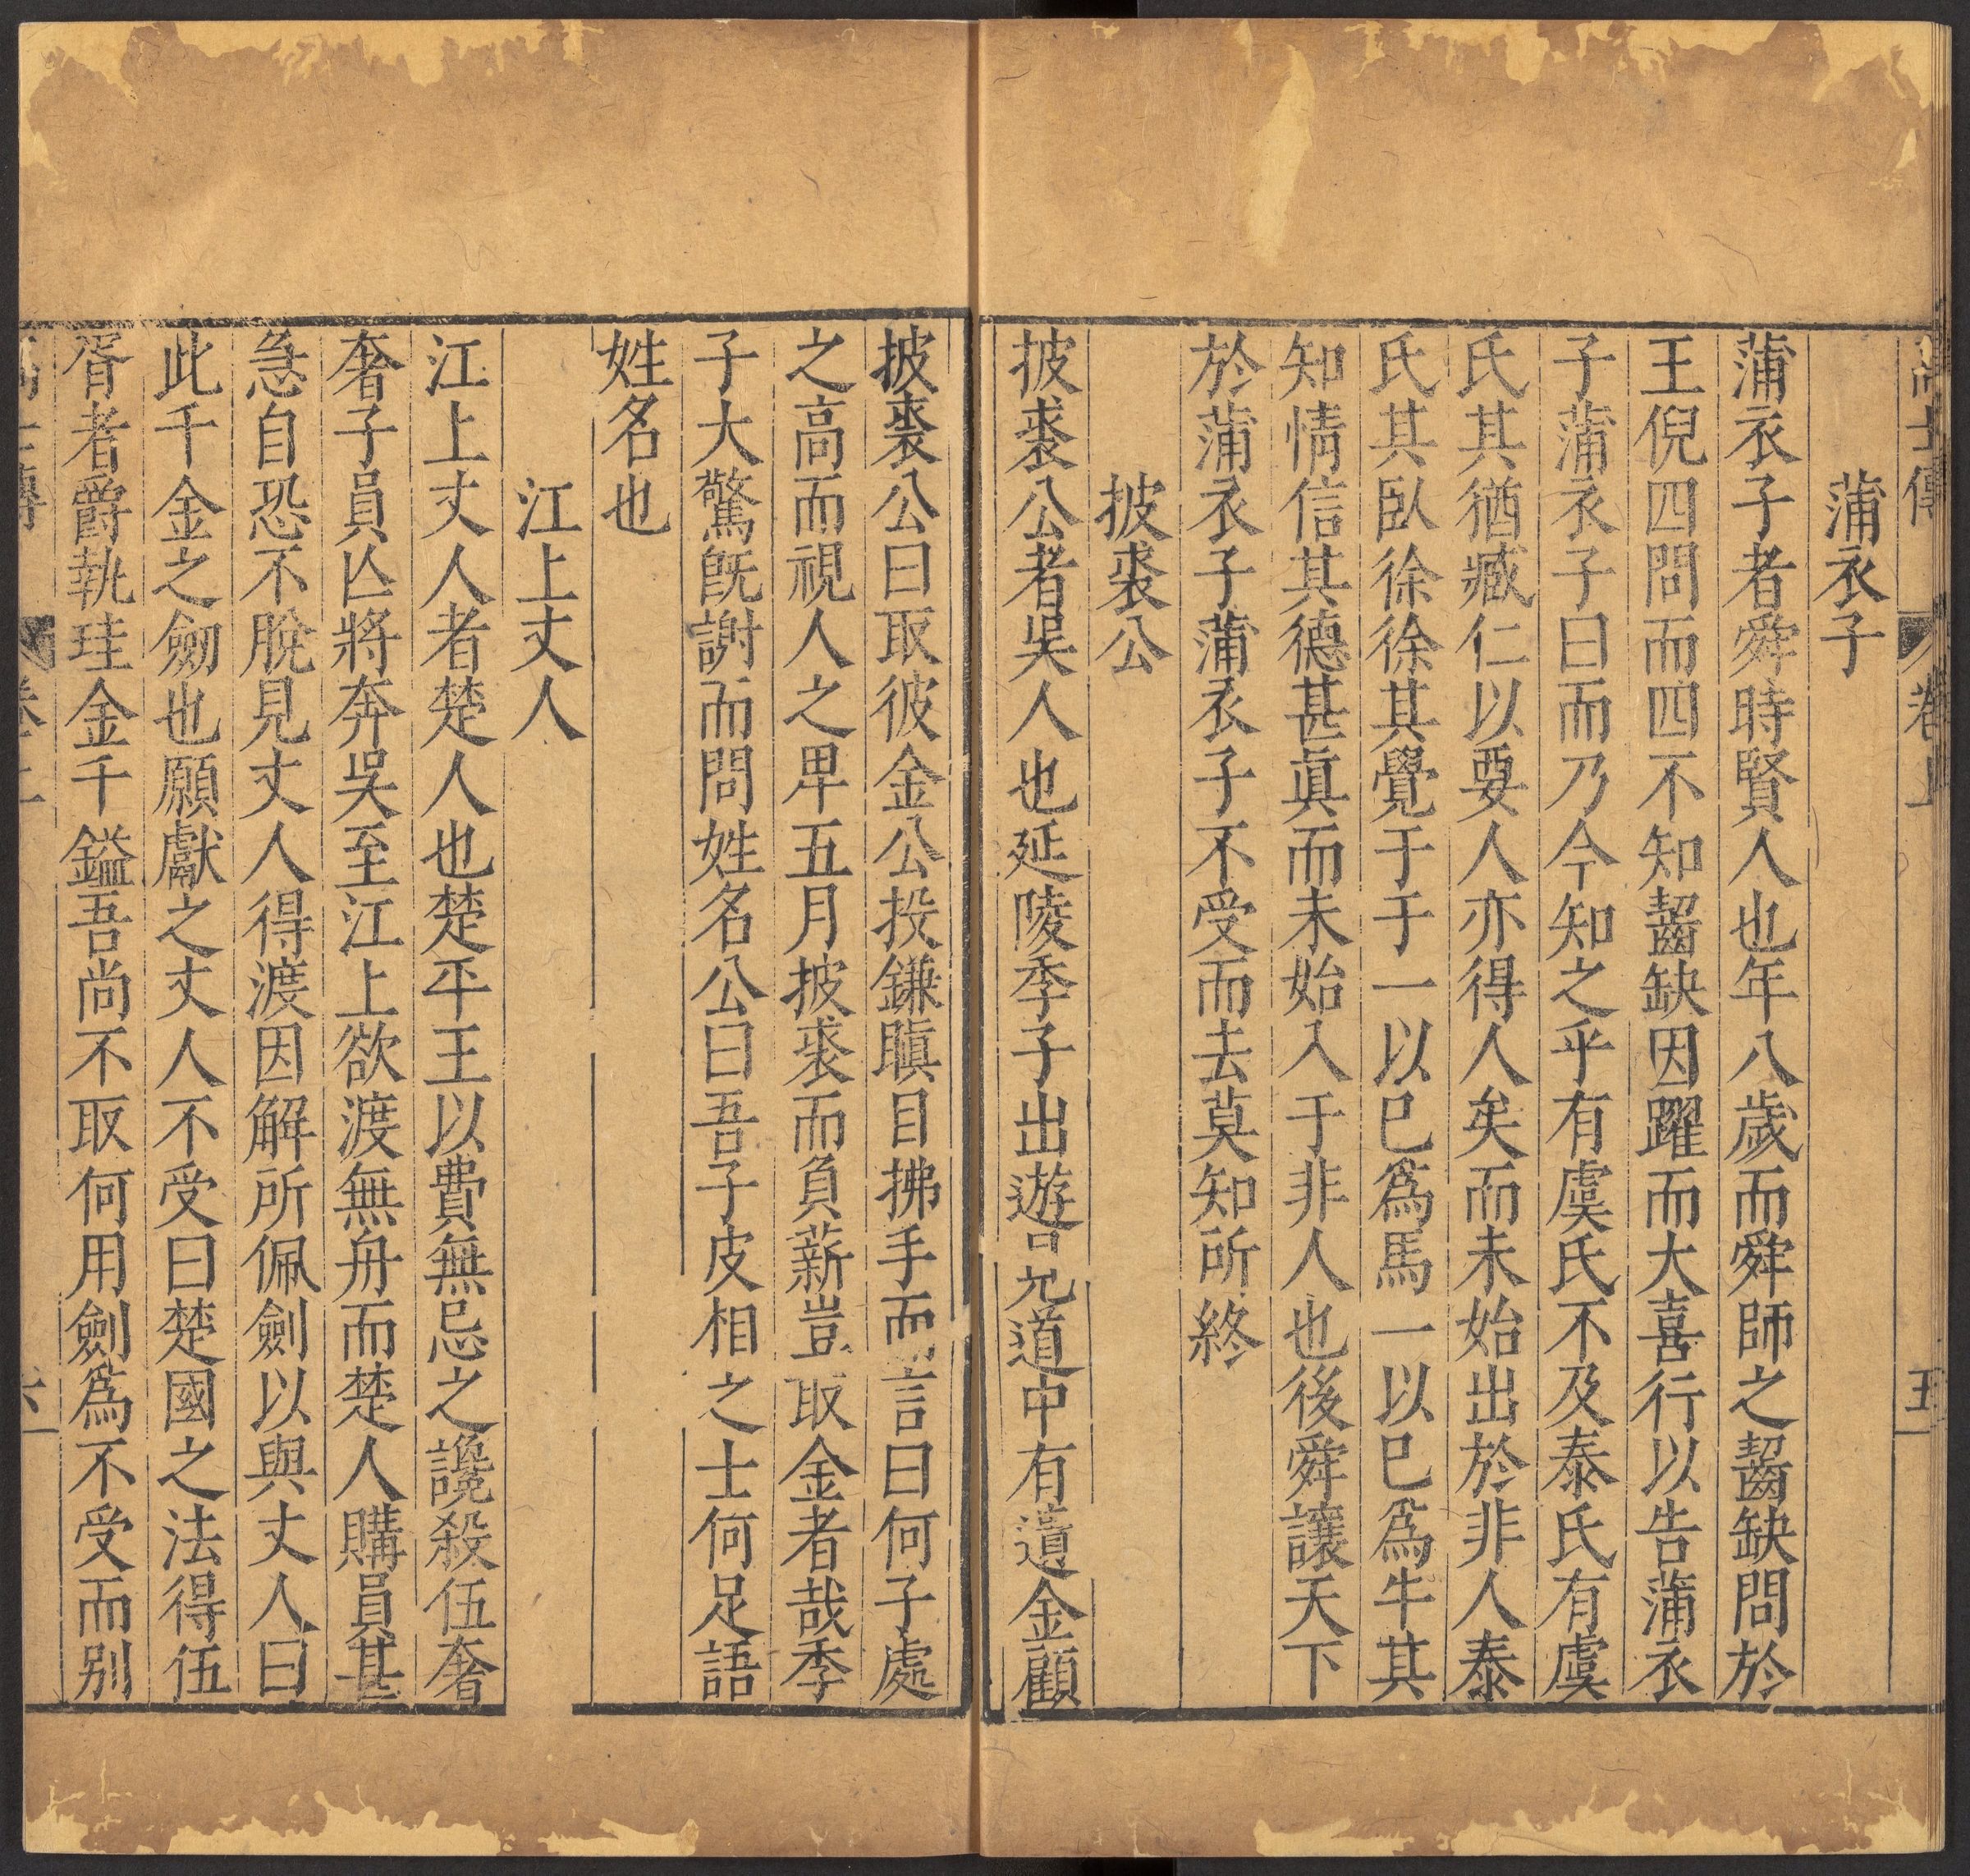 高士傳 卷上 五
蒲衣子
蒲衣子者舜時賢人也年八歲而舜師之齧缺問於
王倪四問而四不知齧缺因躍而大喜行以告蒲衣
子蒲衣子曰而乃今知之乎有虞氏不及泰氏有虞
氏其猶臧仁以要人亦得人矣而未始出於非人泰
氏其臥徐徐其覺于于一以巳爲馬一以巳爲牛其
知情信其德甚眞而未始入于非人也後舜讓天下
於蒲衣子蒲衣子不受而去莫知所終
披裘公
披裘公者吳人也延陵季子出遊見道中有遺金顧
披裘公曰取彼金公投鎌瞋目拂手而言曰何子處
之高而視人之卑五月披裘而負薪豈取金者哉季
子大驚旣謝而問姓名公曰吾子皮相之士何足語
姓名也
江上丈人
江上丈人者楚人也楚平王以費無忌之讒殺伍奢
奢子員亾將奔吳至江上欲渡無舟而楚人購員甚
急自恐不脫見丈人得渡因解所佩劍以與丈人曰
此千金之劒也願獻之丈人不受曰楚國之法得伍
胥者爵執珪金千鎰吾尚不取何用劍爲不受而别
高士傳 卷上 六